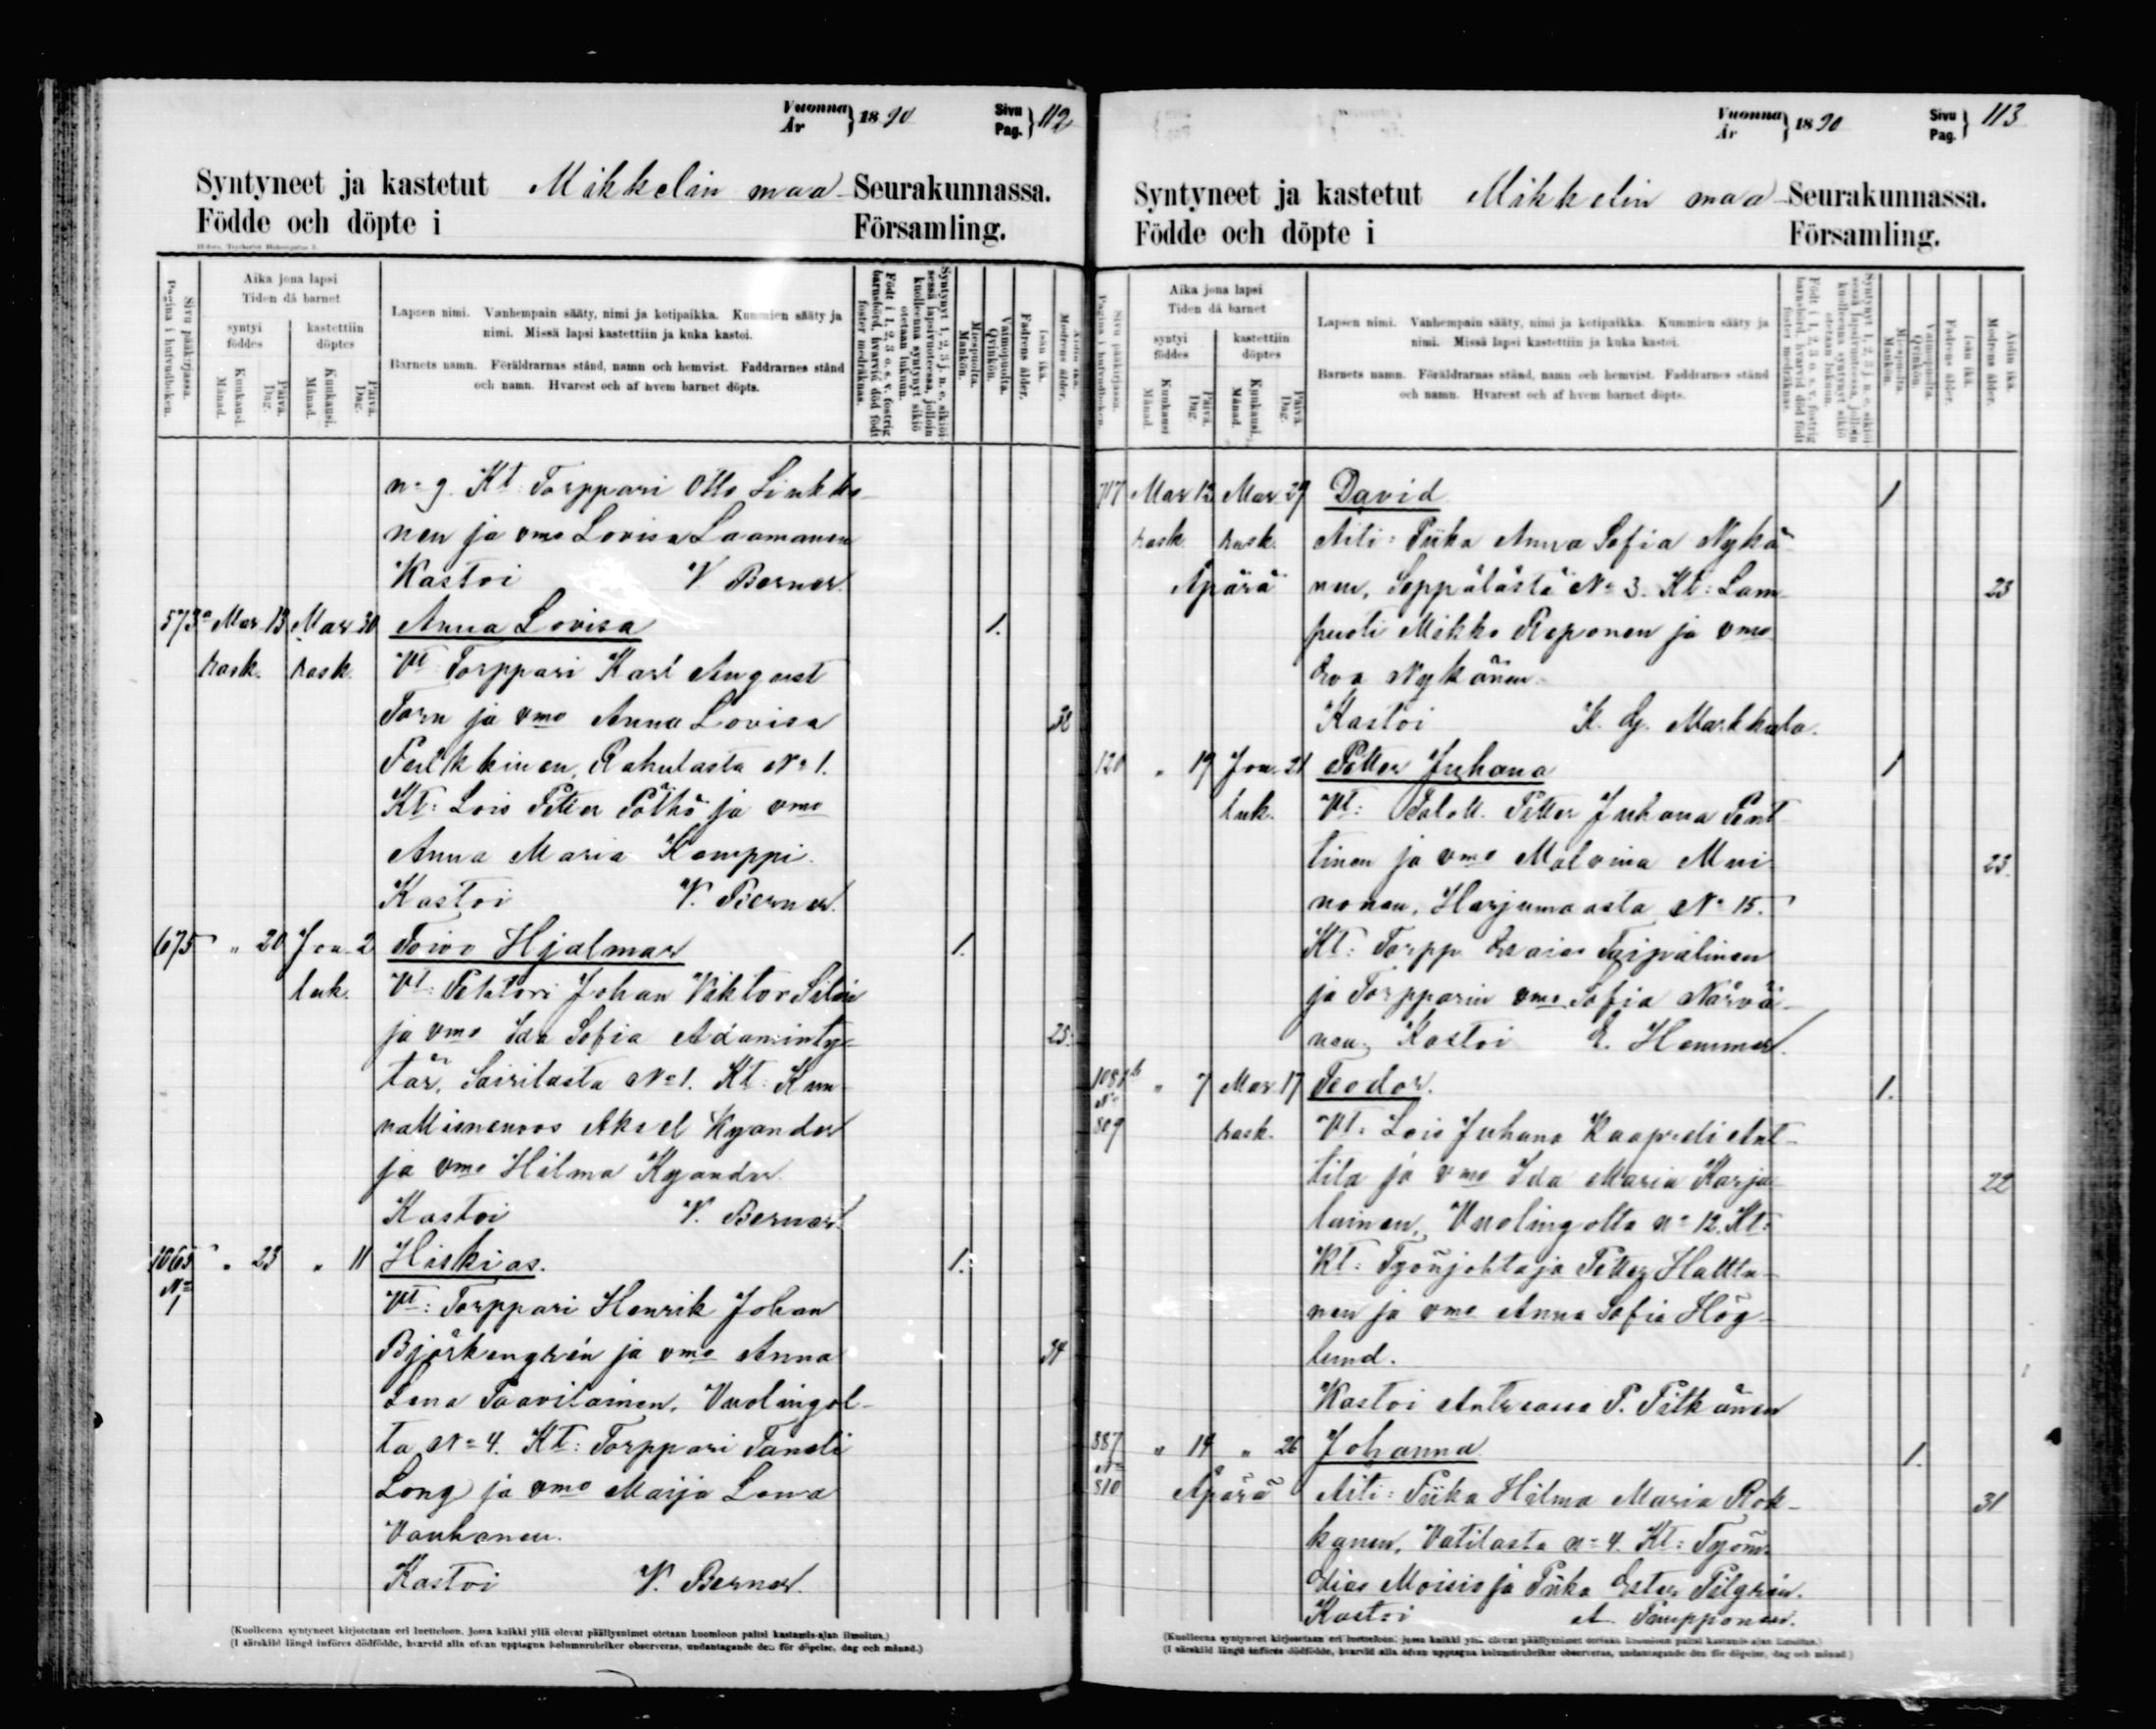 Vuonna År } 1890 Sivu Pag. } 112
Syntyneet ja kastetut Mikkelin maa- Seurakunnassa.
Födde och döpte i Församling.
Sivu pääkirjassa. Pagina i hufvudboken.
Aika jona lapsi
Tiden då barnet
syntyi kastettiin
föddes döptes
Kuukausi. Månad. Päivä. Dag. Kuukausi. Månad. Päivä. Dag.
Lapsen nimi. Vanhempain sääty, nimi ja kotipaikka. Kummien sääty ja
nimi. Missä lapsi kastettiin ja kuka kastoi.
Barnets namn. Föräldrarnas stånd, namn och hemvist. Faddrarnes stånd
och namn. Hvarest och af hvem barnet döpts.
Miespuolta. Mankön. Vaimopuolta. Qvinkön. Isän ikä. Fadrens ålder. Äidin ikä. Modrens ålder.
n:o 9. Kt: Torppari Otto Linkko-
nen ja vmo Lovisa Laamanen
Kastoi V Berner.
573 Mar 13 Mar 30 Anna Lovisa 1.
rask. rask. Vt: Torppari Karl August
Torn ja vmo Anna Lovisa 32
Rahulasta No 1.
Kt: Lois Petter Pöthö ja vmo
Anna Maria Komppi.
Kastoi V. Berner.
675 " 20 Jou 2 Toivo Hjalmar 1.
luk. Vt: Johan Viktor
ja vmo Ida Sofia Adaminty- 23.
tär, Sairilasta No 1. Kt: Kun-
Aksel Kyander
ja vmo Hilma Kyander
Kastoi V. Berner.
1065 " 23 " 11 Hiskias. 1.
No 1 Vt: Torppari Henrik Johan
Björkengrén ja vmo Anna 34
Lena Paavilainen, Vuolingol-
ta No 4. Kt: Torppari Taneli
Long ja vmo Maija Lena
Vauhonen.
Kastoi V. Berner.
(Kuolleena syntyneet kirjotetaan eri luetteloon, jossa kaikki yllä olevat päällysnimet otetaan huomioon paitsi kastamis-ajan ilmoitus.)
(I särskild längd införes dödfödde, hvarvid alla ofvan upptagna kolumnrubriker observeras, undantagande den för döpelse, dag och månad.)
Vuonna År } 1890 Sivu Pag. } 113
Syntyneet ja kastetut Mikkelin maa- Seurakunnassa.
Födde och döpte i Församling.
Sivu pääkirjassa. Pagina i hufvudboken.
Aika jona lapsi
Tiden då barnet
syntyi kastettiin
föddes döptes
Kuukausi Månad. Päivä. Dag. Kuukausi. Månad. Päivä. Dag.
Lapsen nimi. Vanhempain sääty, nimi ja kotipaikka. Kummien sääty ja
nimi. Missä lapsi kastettiin ja kuka kastoi.
Barnets namn. Föräldrarnas stånd, namn och hemvist. Faddrarnes stånd
och namn. Hvarest och af hvem barnet döpts.
Miespuolta. Mankön. Vaimopuolta. Qvinkön. Isän ikä. Fadrens ålder. Äidin ikä. Modrens ålder.
717 Mar 13 Mar 29 David 1
rask. rask. Äiti: Piika Anna Sofia Nykä-
Äpärä nen, Seppälästä No 3. Kt: Lam- 23
puoti Mikko Reponen ja vmo
Eva Nykänen.
Kastoi K. G. Markkula.
120 " 19 Jou 21 Petter Juhana 1
luk. Vt: Taloll. Petter Juhana Pent-
tinen ja vmo Malvina Mui- 23.
nonen, Harjumaasta No 15.
Kt: Torpp. Esaias Taipalinen
ja Torpparin vmo Sofia Närvä-
nen. Kastoi E. Hemmer.
1081 b " 7 Mar 17 Teodor. 1.
809 rask. Vt: Lois Juhana Kaapreli Ant-
tila ja vmo Ida Maria Karja- 22
lainen, Vuolingolta no 12. Kt:
Kt: Työnjohtaja Petter Halttu-
nen ja vmo Anna Sofia Hög-
lund.
Kastoi P. Pitkänen
887 " 14 " 26 Johanna 1.
810 Äpärä Äiti: Piika Hilma Maria Rok- 31
kanen, Vatilasta no 4. Kt: Työm.
Elias Moisio ja Piika Ester Pilgrén.
Kastoi A. Pamppunen.
(Kuolleena syntyneet kirjotetaan eri luetteloon, jossa kaikki yllä olevat päällysnimet otetaan huomioon paitsi kastamis-ajan ilmoitus.)
(I särskild längd införes dödfödde, hvarvid alla ofvan upptagna kolumnrubriker observeras, undantagande den för döpelse, dag och månad.)